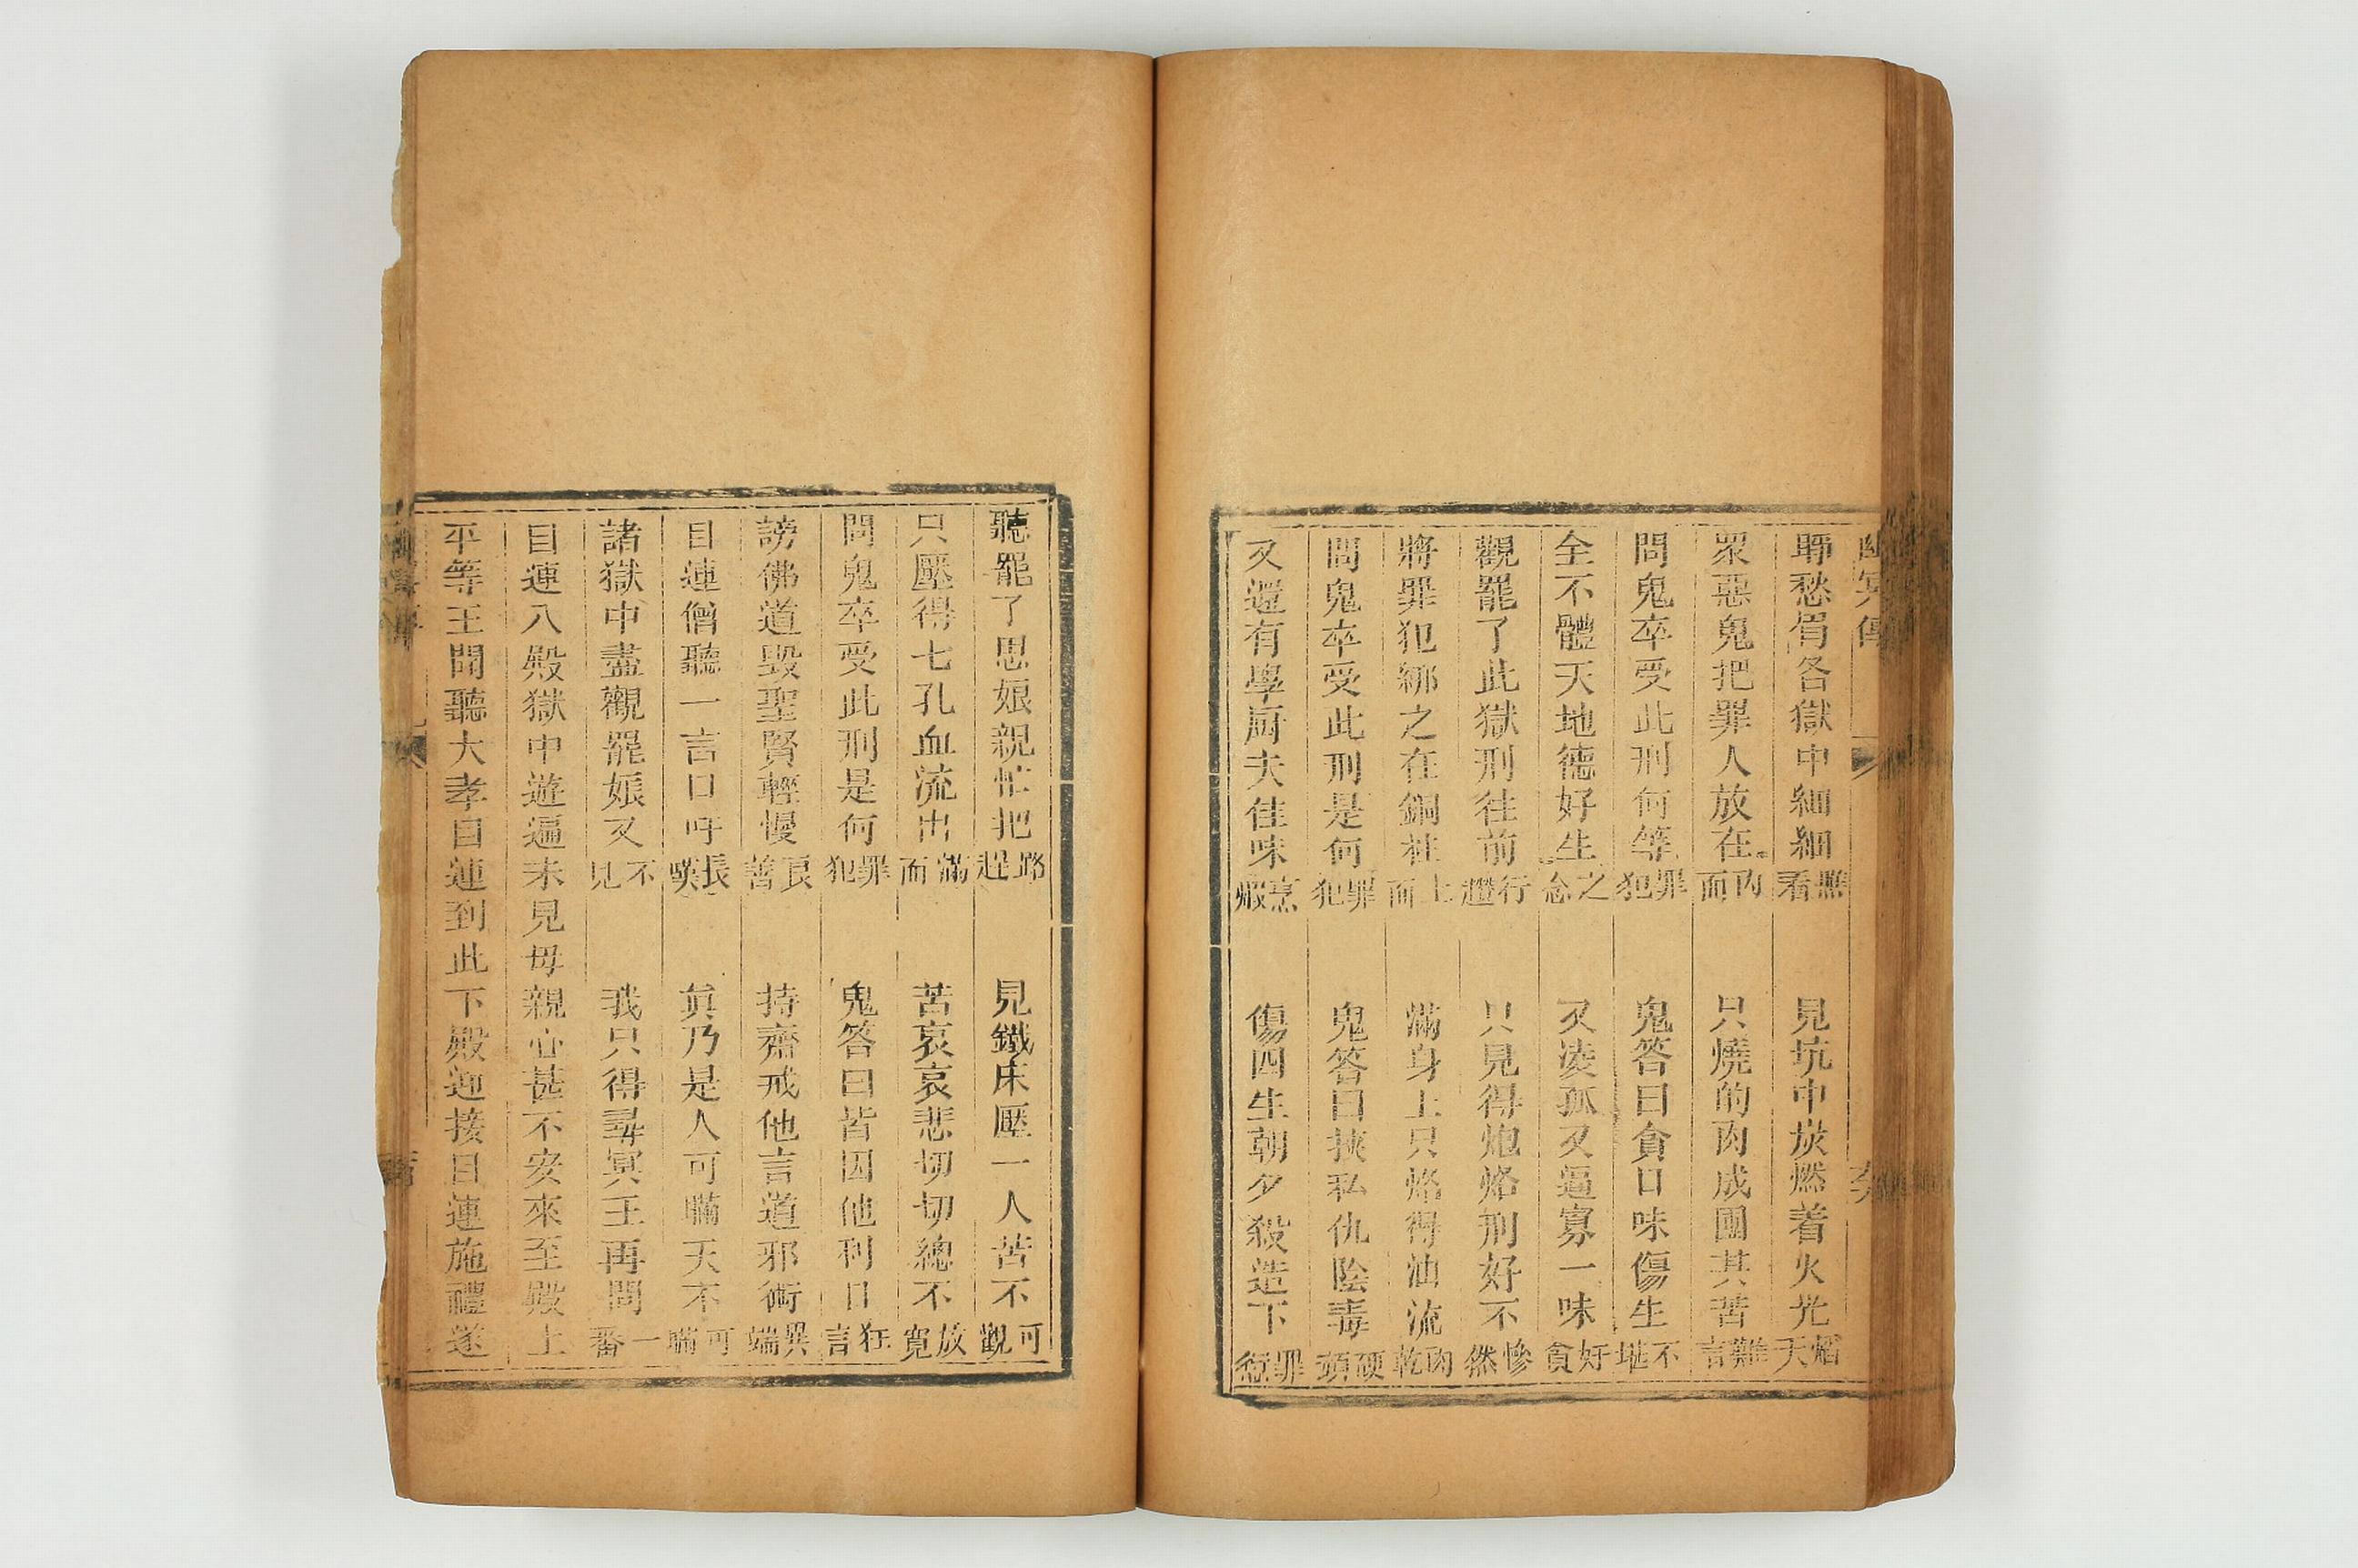 幽冥傳
聹愁眉各獄中細細照看　見坑中炭燃着火光焰天
眾惡鬼把罪人放在內面　只燒的肉成團其苦難言
問鬼卒受此刑何等罪犯　鬼答曰貪口味傷生不堪
全不體天地德好生之念　又凌孤又逼寡一味好貪
觀罷了此獄刑往前行𧽼　只見得炮烙刑好不慘然
將罪犯綁之在銅柱上面　滿身上只烙得油流肉乾
問鬼卒受此刑是何罪犯　鬼答曰挾私仇陰毒硬頑
又還有學厨夫佳味烹㷇　傷四生朝夕殺造下罪愆
聽罷了思娘親忙把路趕　見鐵床壓一人苦不可觀
只壓得七孔血流出滿面　苦哀哀悲切切總不放寬
問鬼卒受此刑是何罪犯　鬼答曰皆因他利口狂言
謗佛道毀聖賢輕慢良善　持齋戒他言道邪術異端
目連僧聽一言口呼長嘆　眞乃是人可瞞天不可瞞
諸獄中盡觀罷娘又不見　我只得尋冥王再問一番
目連八殿獄中遊遍未見母親心甚不安來至殿上
平等王聞聽大孝目連到此下殿迎接目連施禮遂